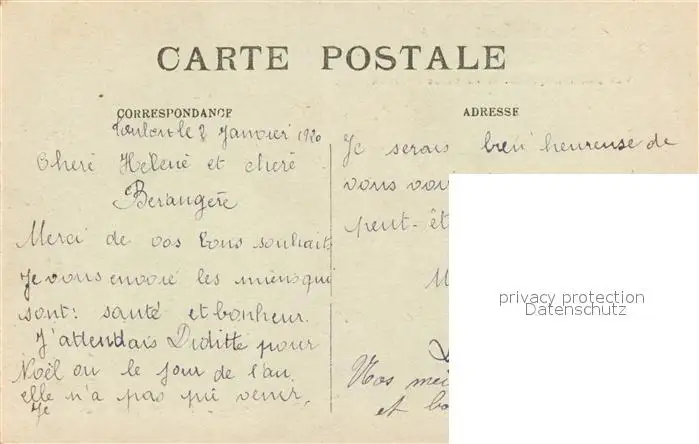 CARTE POSTALE
CORRESPONDANCE
Toulon le 2 Janvier 1920
Cheré Hélène et cheré
Berangère
Merci de vos bons souhaits
Je vous envoie les miens qui
sont: santé et bonheur.
J'attendais Diditte pour
Noël ou le jour de l'an
elle n'a pas pu venir.
Je
ADRESSE
Je serais bien heureuse de
vous
peut-êt
Vos mei
et bo
privacy protection
Datenschutz